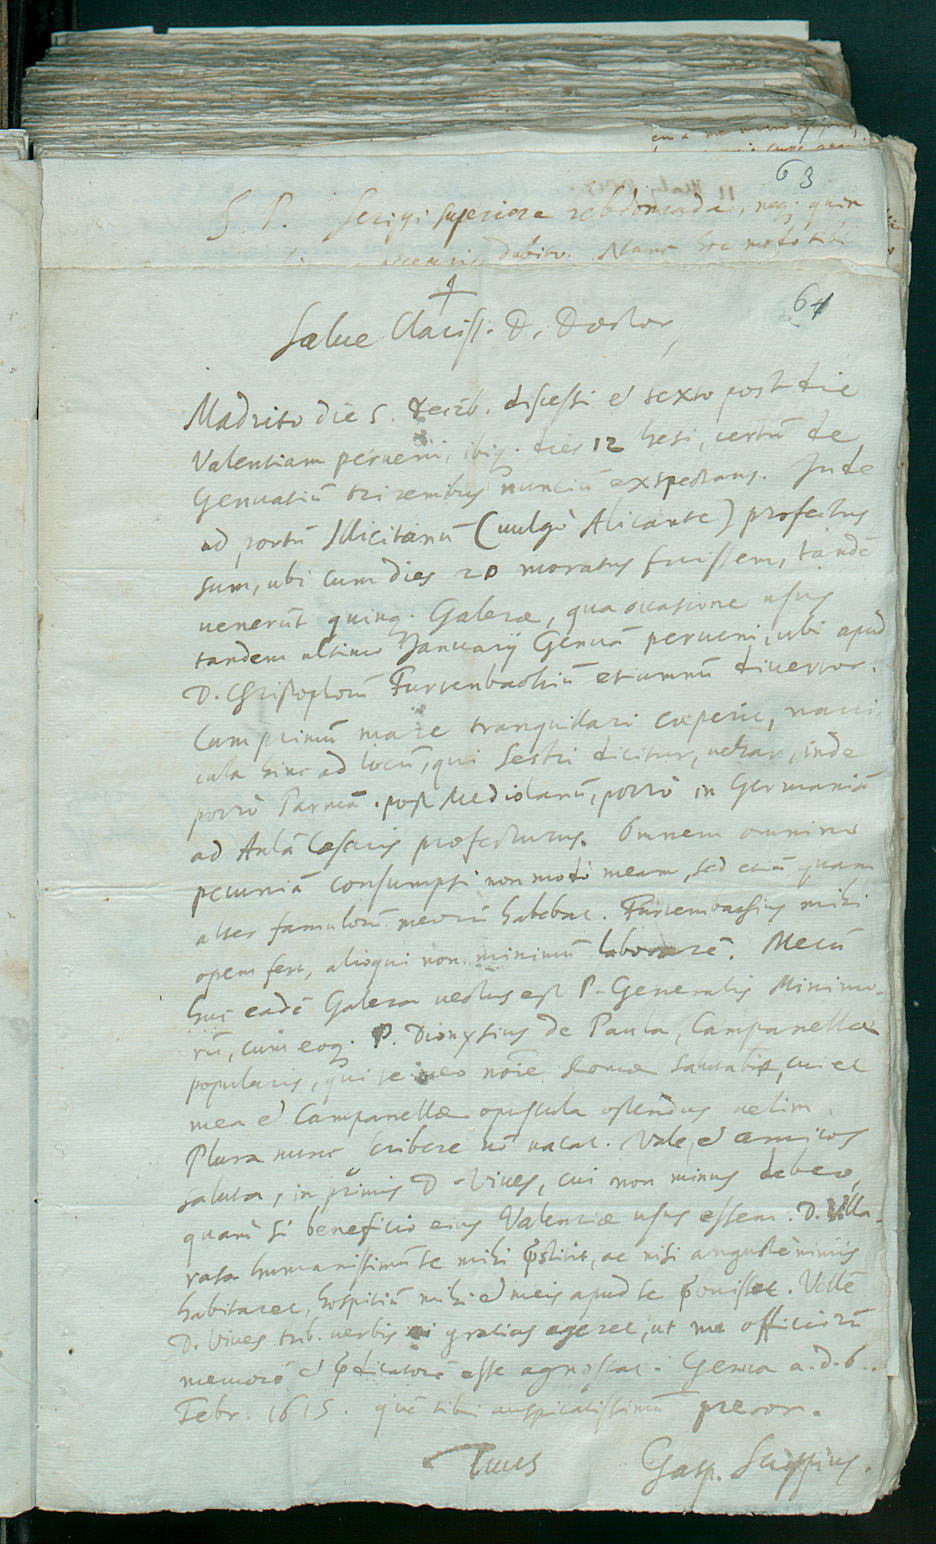 63
S. P. Scripsi superiore hebdomada, neq; quin
dubito. Nunc hoc modo tibi
64
Salue Clariss. D. Doctor,
Madrito die 5. Decēb. discessi et sexto post die
Valentiam perueni, ibiq. dies 12 hesi, certū de
Genuatiū triremibus nunciū exspectans. Inde
ad portū Illicitanū (uulgò Alicante) profectus
sum, ubi cum dies 20 moratus fuissem, tandē
uenerūt quinq. Galeræ, qua occasione usus
tandem ultimo Januarij Genuā perueni, ubi apud
D. Christophorū Furtenbachiū etiamnū diuersor.
Cum primū mare tranquillari cæperit, naui-
cula hinc ad locū, qui Sestri dicitur, uehar, inde
porrò Parmā, post Mediolanū, porrò in Germaniā
ad Aulā Cæsaris profecturus. Omnem omnino
pecuniā consumpsi non modò meam, sed etiā quam
alter famulorū meorū habebat. Furtembachius mihi
opem fert, alioqui non minimū laborarē. Mecū
huc eadē Galera uectus est P. Generalis Minimo-
rū, cum eoq. P. Dionysius de Paula, Campanellæ
popularis, qui te meo noīe Romæ salutabit, cui et
mea et Campanellæ opuscula ostendas uelim.
Plura nunc scribere nō uacat. Vale, et amicos
saluta, in primis D. Viues, cui non minus debeo,
quam si beneficio eius Valentiæ usus essem. D. Villa-
rasa humanissimū se mihi p̄stitit, ac nisi angustè nimis
habitaret, hospitiū mihi et meis apud se p̄buisset. Vellē
D. Viues trib. uerbis ei gratias ageret, ut me officiorū
memorē et p̄dicatorē esse agnoscat. Genua a. d. 6.
Febr. 1615. quē tibi auspicatissimum precor.
Tuus Gasp. Scioppius.